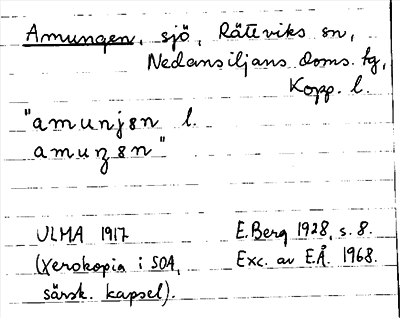 Amungen, sjö, Rättviks sn,
Nedansiljans doms. tg,
Kopp. l.
"amunjən l.
amuŋən"
ULMA 1917
(Xerokopia i SOA,
särsk. kapsel).
E. Berg 1928, s. 8.
Exc. av E.Å. 1968.